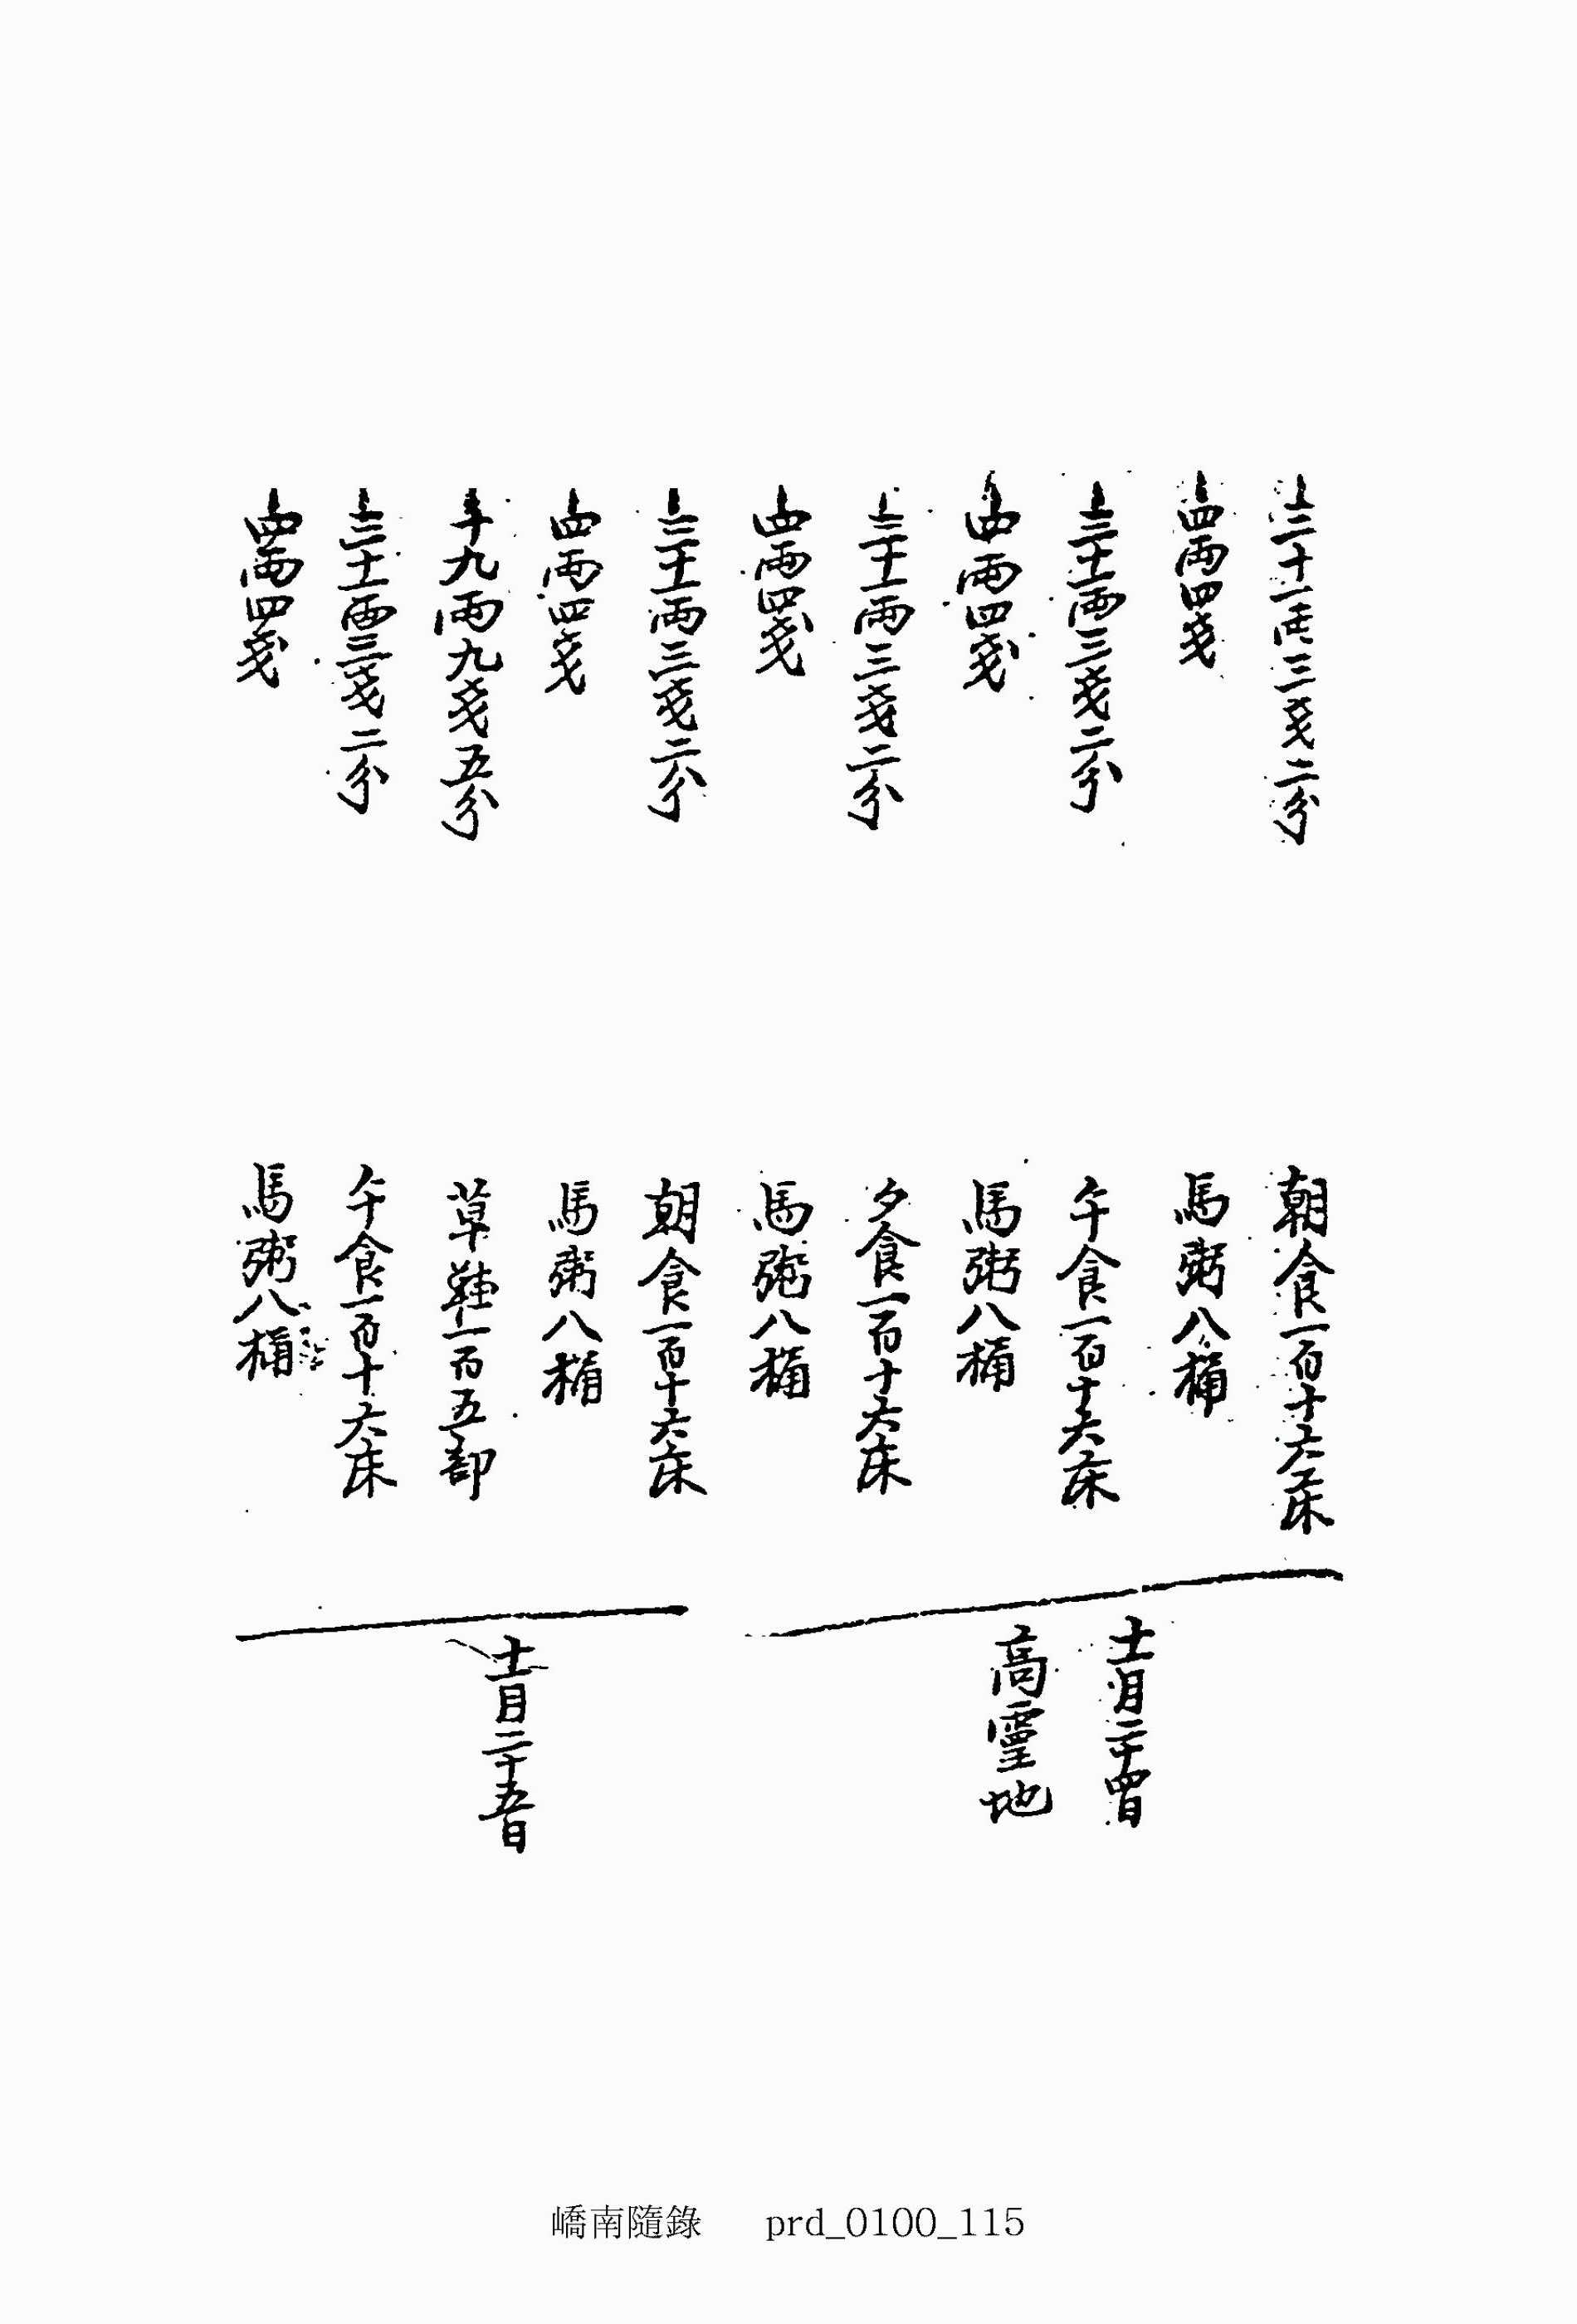 上三十一両三戔二分 朝食一百十六床
上四両四戔 馬粥八桶
上三十一両三戔二分 午食一百十六床
上四両四戔 馬粥八桶
上三十一両三戔二分 夕食一百十六床
上四両四戔 馬粥八桶
十一月二十四日
高靈地
上三十一両三戔二分 朝食一百十六床
上四両四戔 馬粥八桶
上十九両九戔五分 草鞋一百五部
上三十一両三戔二分 午食一百十六床
上四両四戔 馬粥八桶
十一月二十五日
嶠南隨錄 prd_0100_115